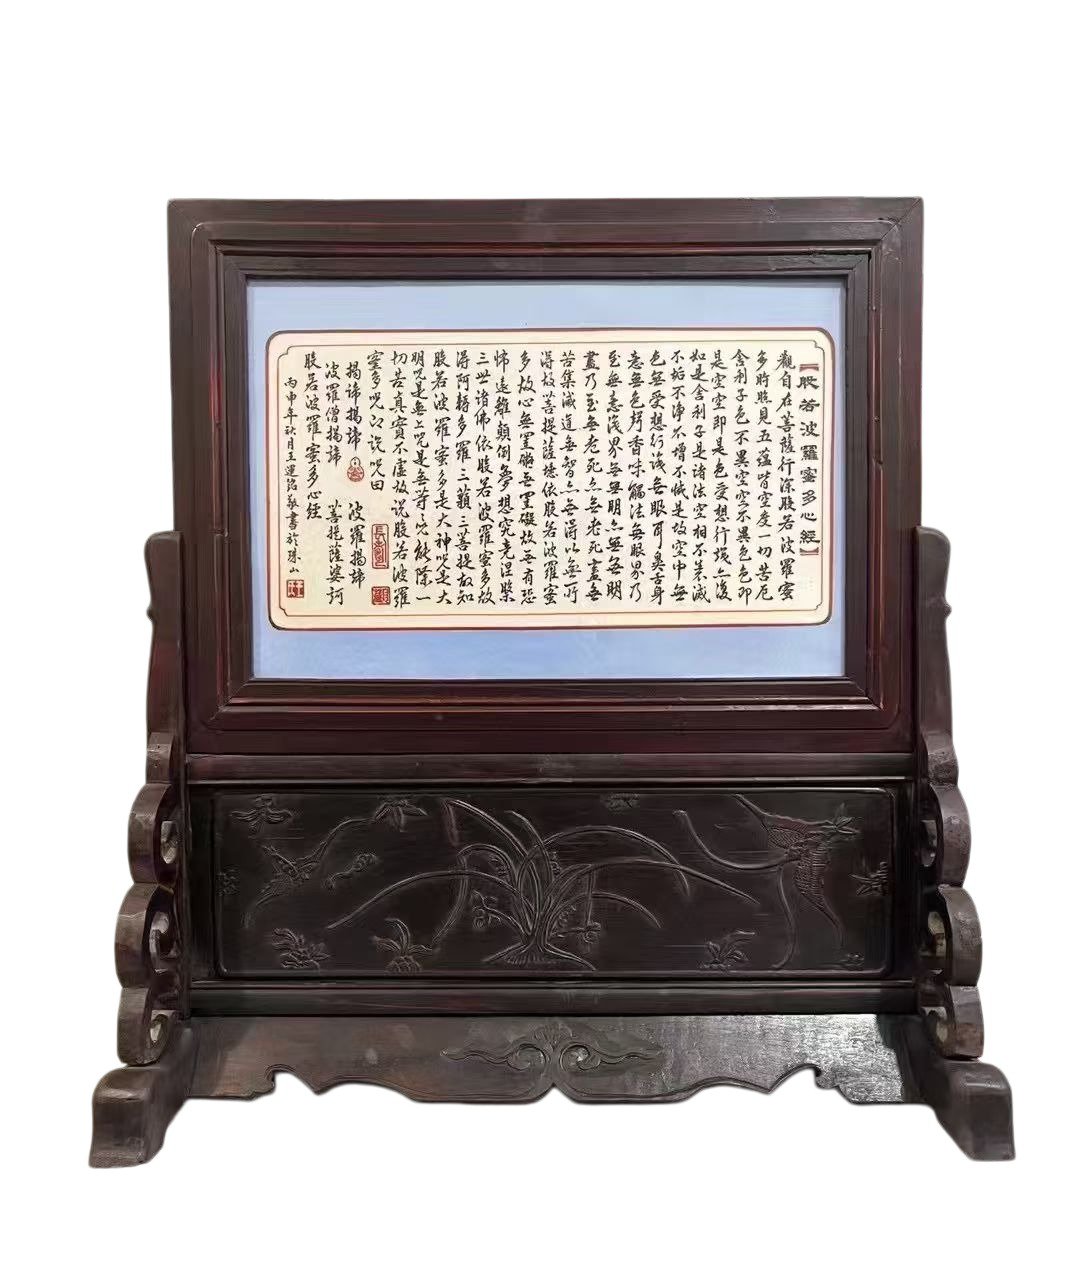 【般若波羅蜜多心經】
觀自在菩薩行深般若波羅蜜
多時照見五蘊皆空度一切苦厄
舍利子色不異空空不異色色即
是空空即是色受想行識亦復
如是舍利子是諸法空相不生滅
不垢不淨不增不減是故空中無
色無受想行識無眼耳鼻舌身
意無色聲香味觸法無眼界乃
至無意識界無無明亦無無明
盡乃至無老死亦無老死盡無
苦集滅道無智亦無得以無所
得故菩提薩埵依般若波羅蜜
多故心無罣礙無罣礙故無有恐
怖遠離顛倒夢想究竟涅槃
三世諸佛依般若波羅蜜多故
得阿耨多羅三藐三菩提故知
般若波羅蜜多是大神咒是大
明咒是無上咒是無等等咒能除一
切苦真實不虛故說般若波羅
蜜多咒即說咒曰
揭諦揭諦 波羅揭諦
波羅僧揭諦 菩提薩婆訶
般若波羅蜜多心經
丙申年秋月王運銘敬書於珠山